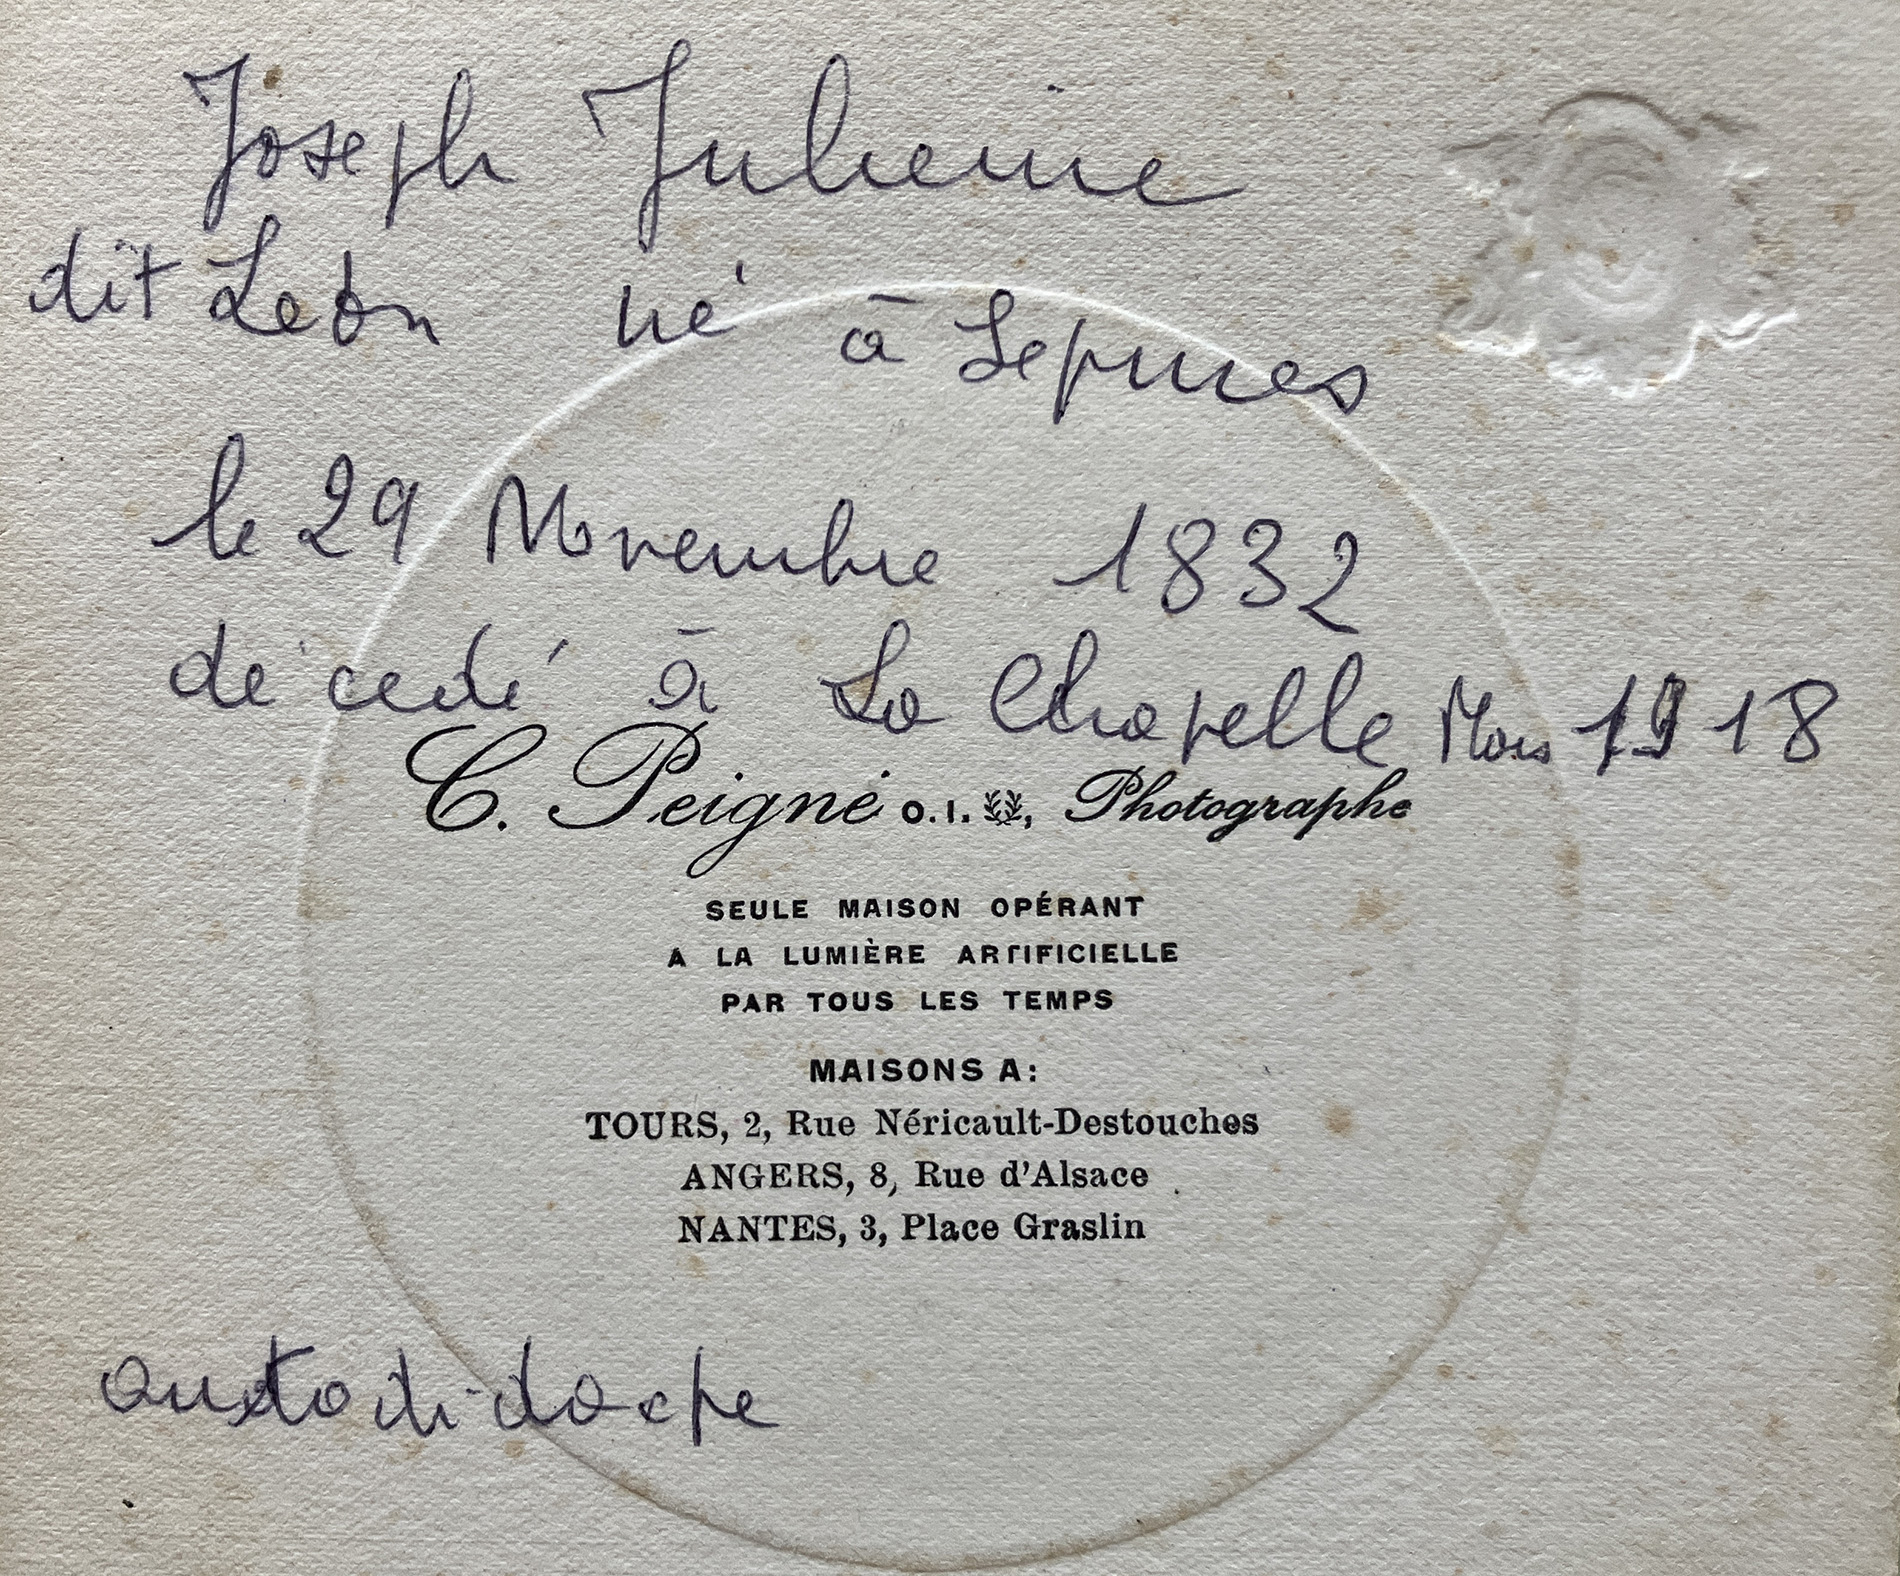 Joseph Julienne
dit Léon né à Sepmes
le 29 Novembre 1832
décédé à La Chapelle Mars 1918
C. Peigné O. I. , Photographe
SEULE MAISON OPÉRANT
A LA LUMIÈRE ARTIFICIELLE
PAR TOUS LES TEMPS
MAISONS A:
TOURS, 2, Rue Néricault-Destouches
ANGERS, 8, Rue d'Alsace
NANTES, 3, Place Graslin
autodidacte